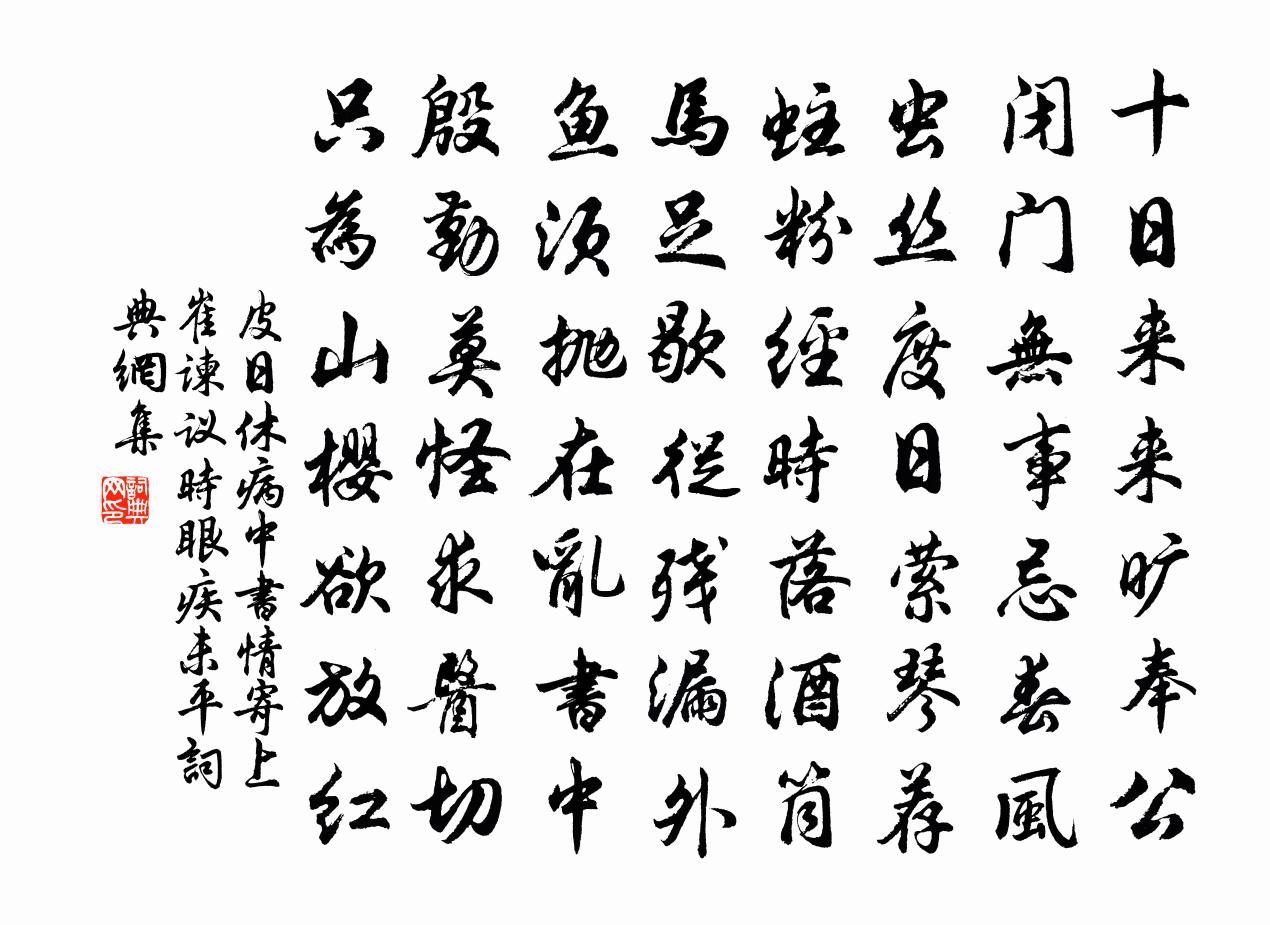 十日来来旷奉公
闭门無事忌春風
虫丝度日萦琴荐
蛀粉經時落酒筒
馬足歇從残漏外
鱼须抛在亂書中
殷勤莫怪求醫切
只為山櫻欲放红
皮日休病中書情寄上
崔谏议時眼疾未平詞
典網集
詞典网印